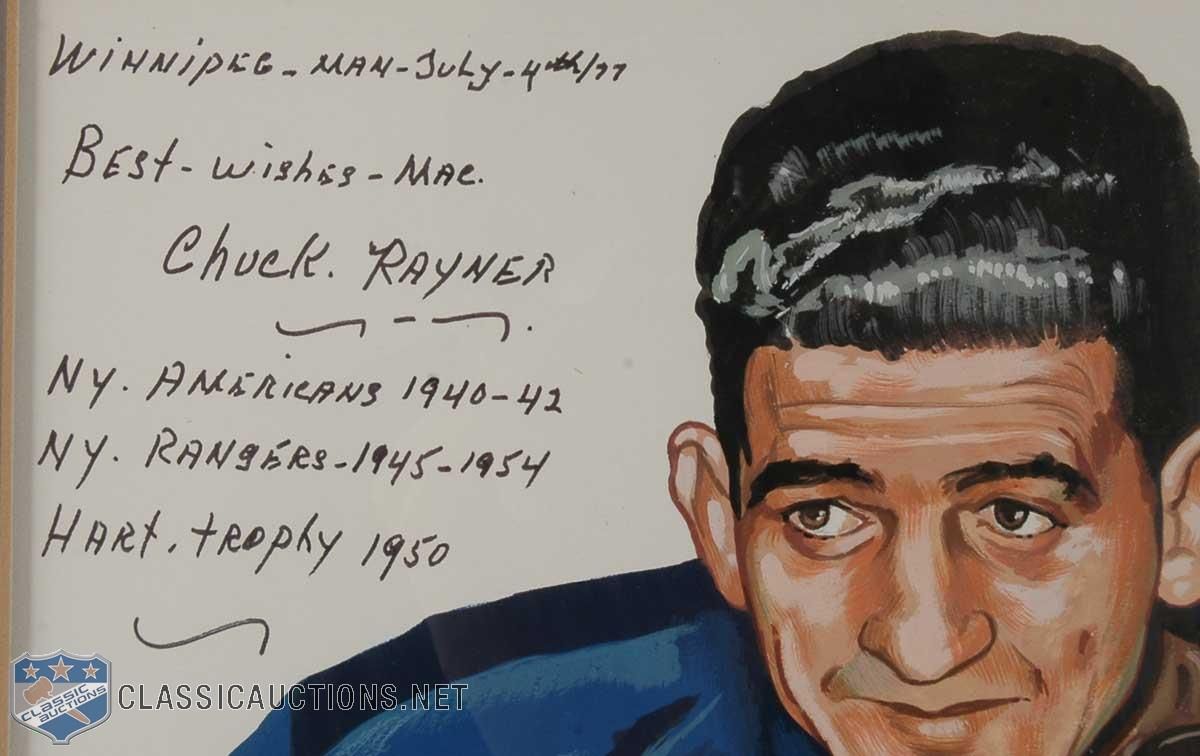 Winnipeg - Man - July - 4th/77
Best - Wishes - Mac.
Chuck. Rayner
NY. Americans 1940-42
NY. Rangers - 1945-1954
Hart. trophy 1950
CLASSIC AUCTIONS
CLASSICAUCTIONS.NET